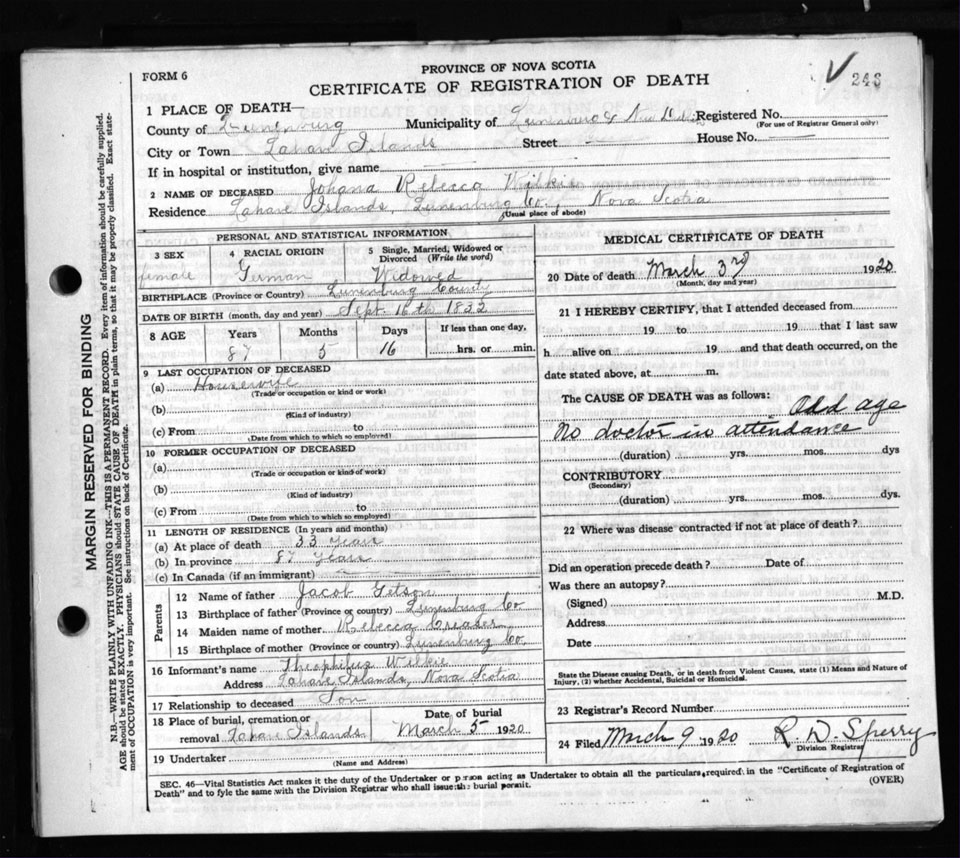 PROVINCE OF NOVA SCOTIA
FORM 6
CERTIFICATE OF REGISTRATION OF DEATH
246
1 PLACE OF DEATH—
County of Lunenburg Municipality of Lunenburg & New Dublin Registered No.
(For use of Registrar General only)
City or Town Lahave Islands Street House No.
If in hospital or institution, give name
2 NAME OF DECEASED Johana Rebecca Wilkie
Residence Lahave Islands, Lunenburg Co., Nova Scotia
(Usual place of abode)
PERSONAL AND STATISTICAL INFORMATION
3 SEX female
4 RACIAL ORIGIN German
5 Single, Married, Widowed or Divorced (Write the word) Widowed
BIRTHPLACE (Province or Country) Lunenburg County
DATE OF BIRTH (month, day and year) Sept 16th 1832
8 AGE Years 87 Months 5 Days 16 If less than one day, hrs. or min.
9 LAST OCCUPATION OF DECEASED
(a) Housewife
(Trade or occupation or kind or work)
(b)
(Kind of industry)
(c) From to
(Date from which to which so employed)
10 FORMER OCCUPATION OF DECEASED
(a)
(Trade or occupation or kind of work)
(b)
(Kind of industry)
(c) From to
(Date from which to which so employed)
11 LENGTH OF RESIDENCE (In years and months)
(a) At place of death 33 years
(b) In province 87 years
(c) In Canada (if an immigrant)
Parents
12 Name of father Jacob Getson
13 Birthplace of father (Province or country) Lunenburg Co
14 Maiden name of mother Rebecca Creaser
15 Birthplace of mother (Province or country) Lunenburg Co.
16 Informant's name Theophilus Wilkie
Address Lahave Islands, Nova Scotia
17 Relationship to deceased Son
18 Place of burial, cremation or removal Lahave Islands Date of burial March 5 1920
19 Undertaker
(Name and Address)
MEDICAL CERTIFICATE OF DEATH
20 Date of death March 3rd 1920
(Month, day and year)
21 I HEREBY CERTIFY, that I attended deceased from
19 to 19 that I last saw
h alive on 19 and that death occurred, on the
date stated above, at m.
The CAUSE OF DEATH was as follows: Old age
No doctor in attendance
(duration) yrs. mos. dys
CONTRIBUTORY
(Secondary)
(duration) yrs. mos. dys.
22 Where was disease contracted if not at place of death?
Did an operation precede death? Date of
Was there an autopsy?
(Signed) M.D.
Address
Date
State the Disease causing Death, or in death from Violent Causes, state (1) Means and Nature of
Injury, (2) whether Accidental, Suicidal or Homicidal.
23 Registrar's Record Number
24 Filed March 9 1920 R. D. Sperry
Division Registrar
SEC. 46—Vital Statistics Act makes it the duty of the Undertaker or person acting as Undertaker to obtain all the particulars required in the "Certificate of Registration of
Death" and to fyle the same with the Division Registrar who shall issue the burial permit. (OVER)
MARGIN RESERVED FOR BINDING
N.B.—WRITE PLAINLY WITH UNFADING INK—THIS IS A PERMANENT RECORD. Every item of information should be carefully supplied.
AGE should be stated EXACTLY. PHYSICIANS should STATE CAUSE OF DEATH in plain terms, so that it may be properly classified. Exact state-
ment of OCCUPATION is very important. See instructions on back of Certificate.